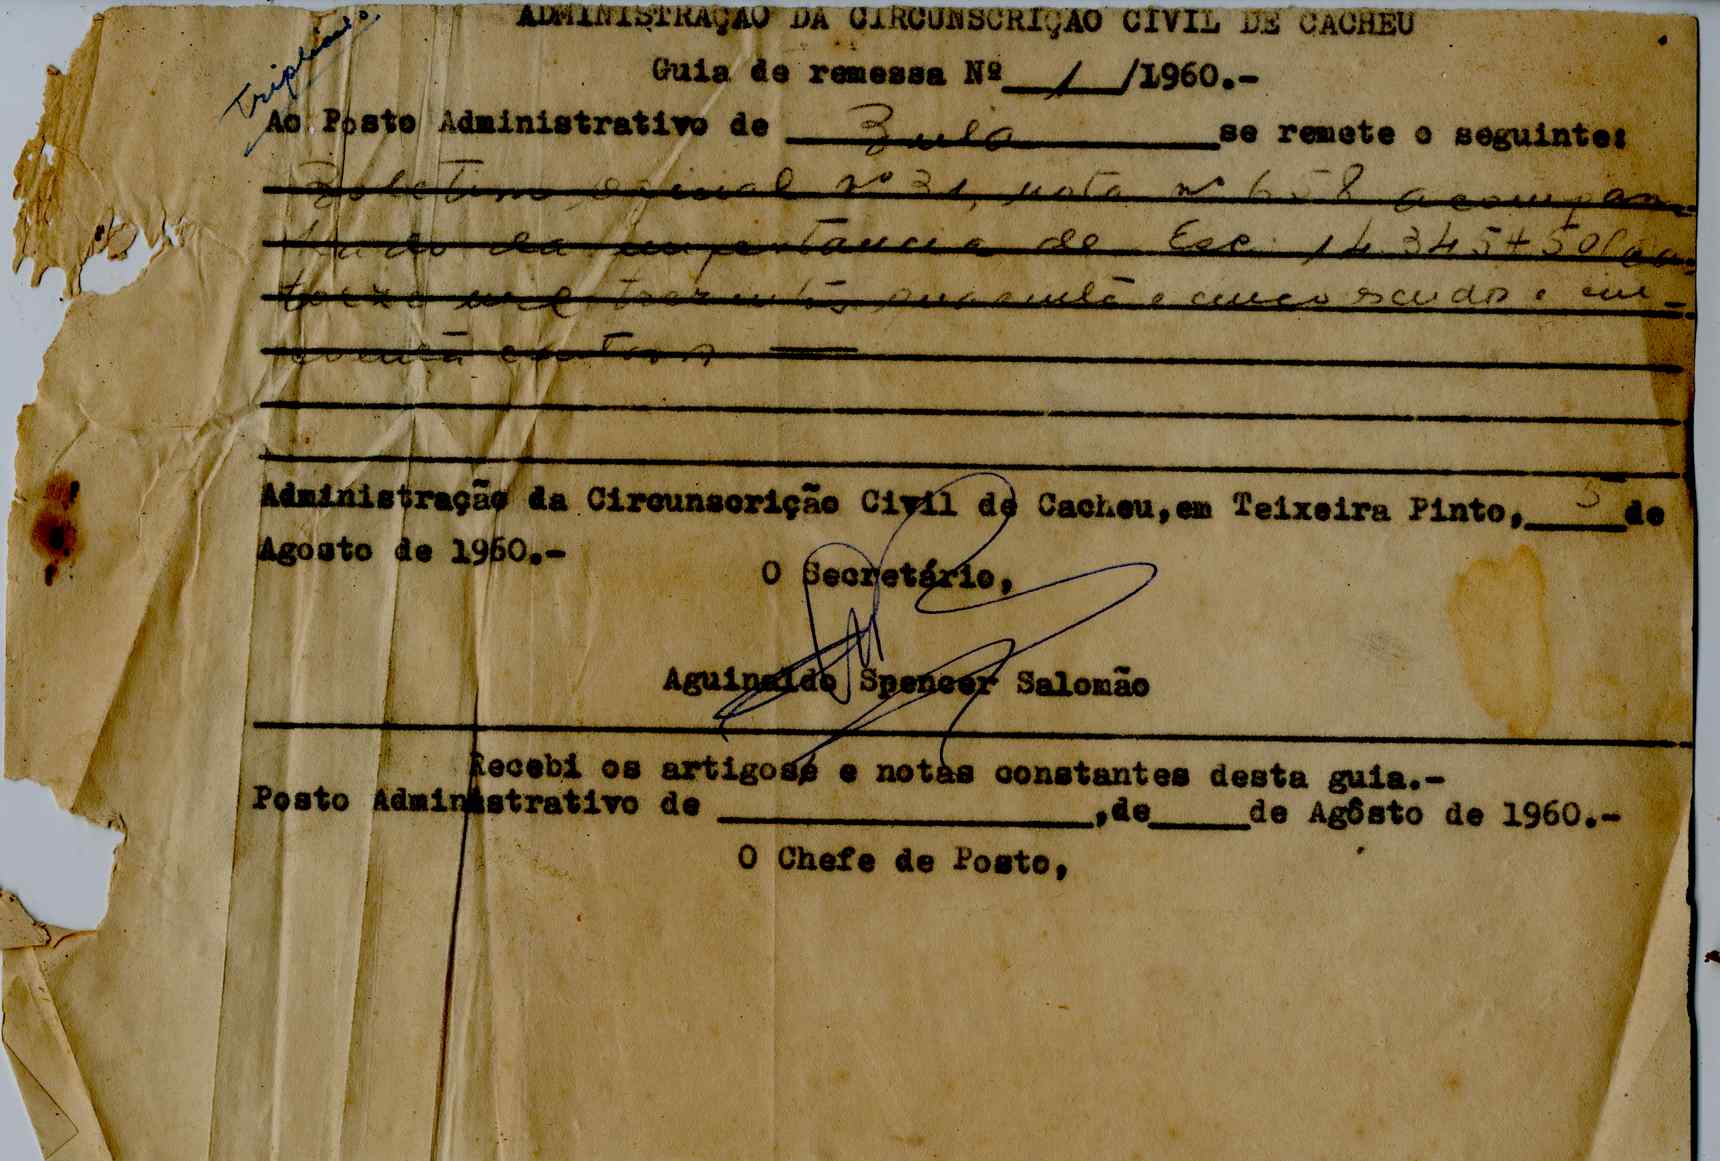 ADMINISTRAÇÃO DA CIRCUNSCRIÇÃO CIVIL DE CACHEU
Triplicado
Guia de remessa Nº 1 /1960.-
Ao Posto Administrativo de Bula se remete o seguinte:
Boletim oficial nº 31, nota nº 658 acompan-
hado da importancia de Esc. 14.345$50 (ca-
torze mil trezentos, quarenta e cinco escudos e cin-
coenta centavos
Administração da Circunscrição Civil de Cacheu,em Teixeira Pinto, 5 de
Agosto de 1960.-
O Secretário,
Aguinaldo Spencer Salomão
Recebi os artigoss e notas constantes desta guia.-
Posto Administrativo de ,de de Agôsto de 1960.-
O Chefe de Posto,